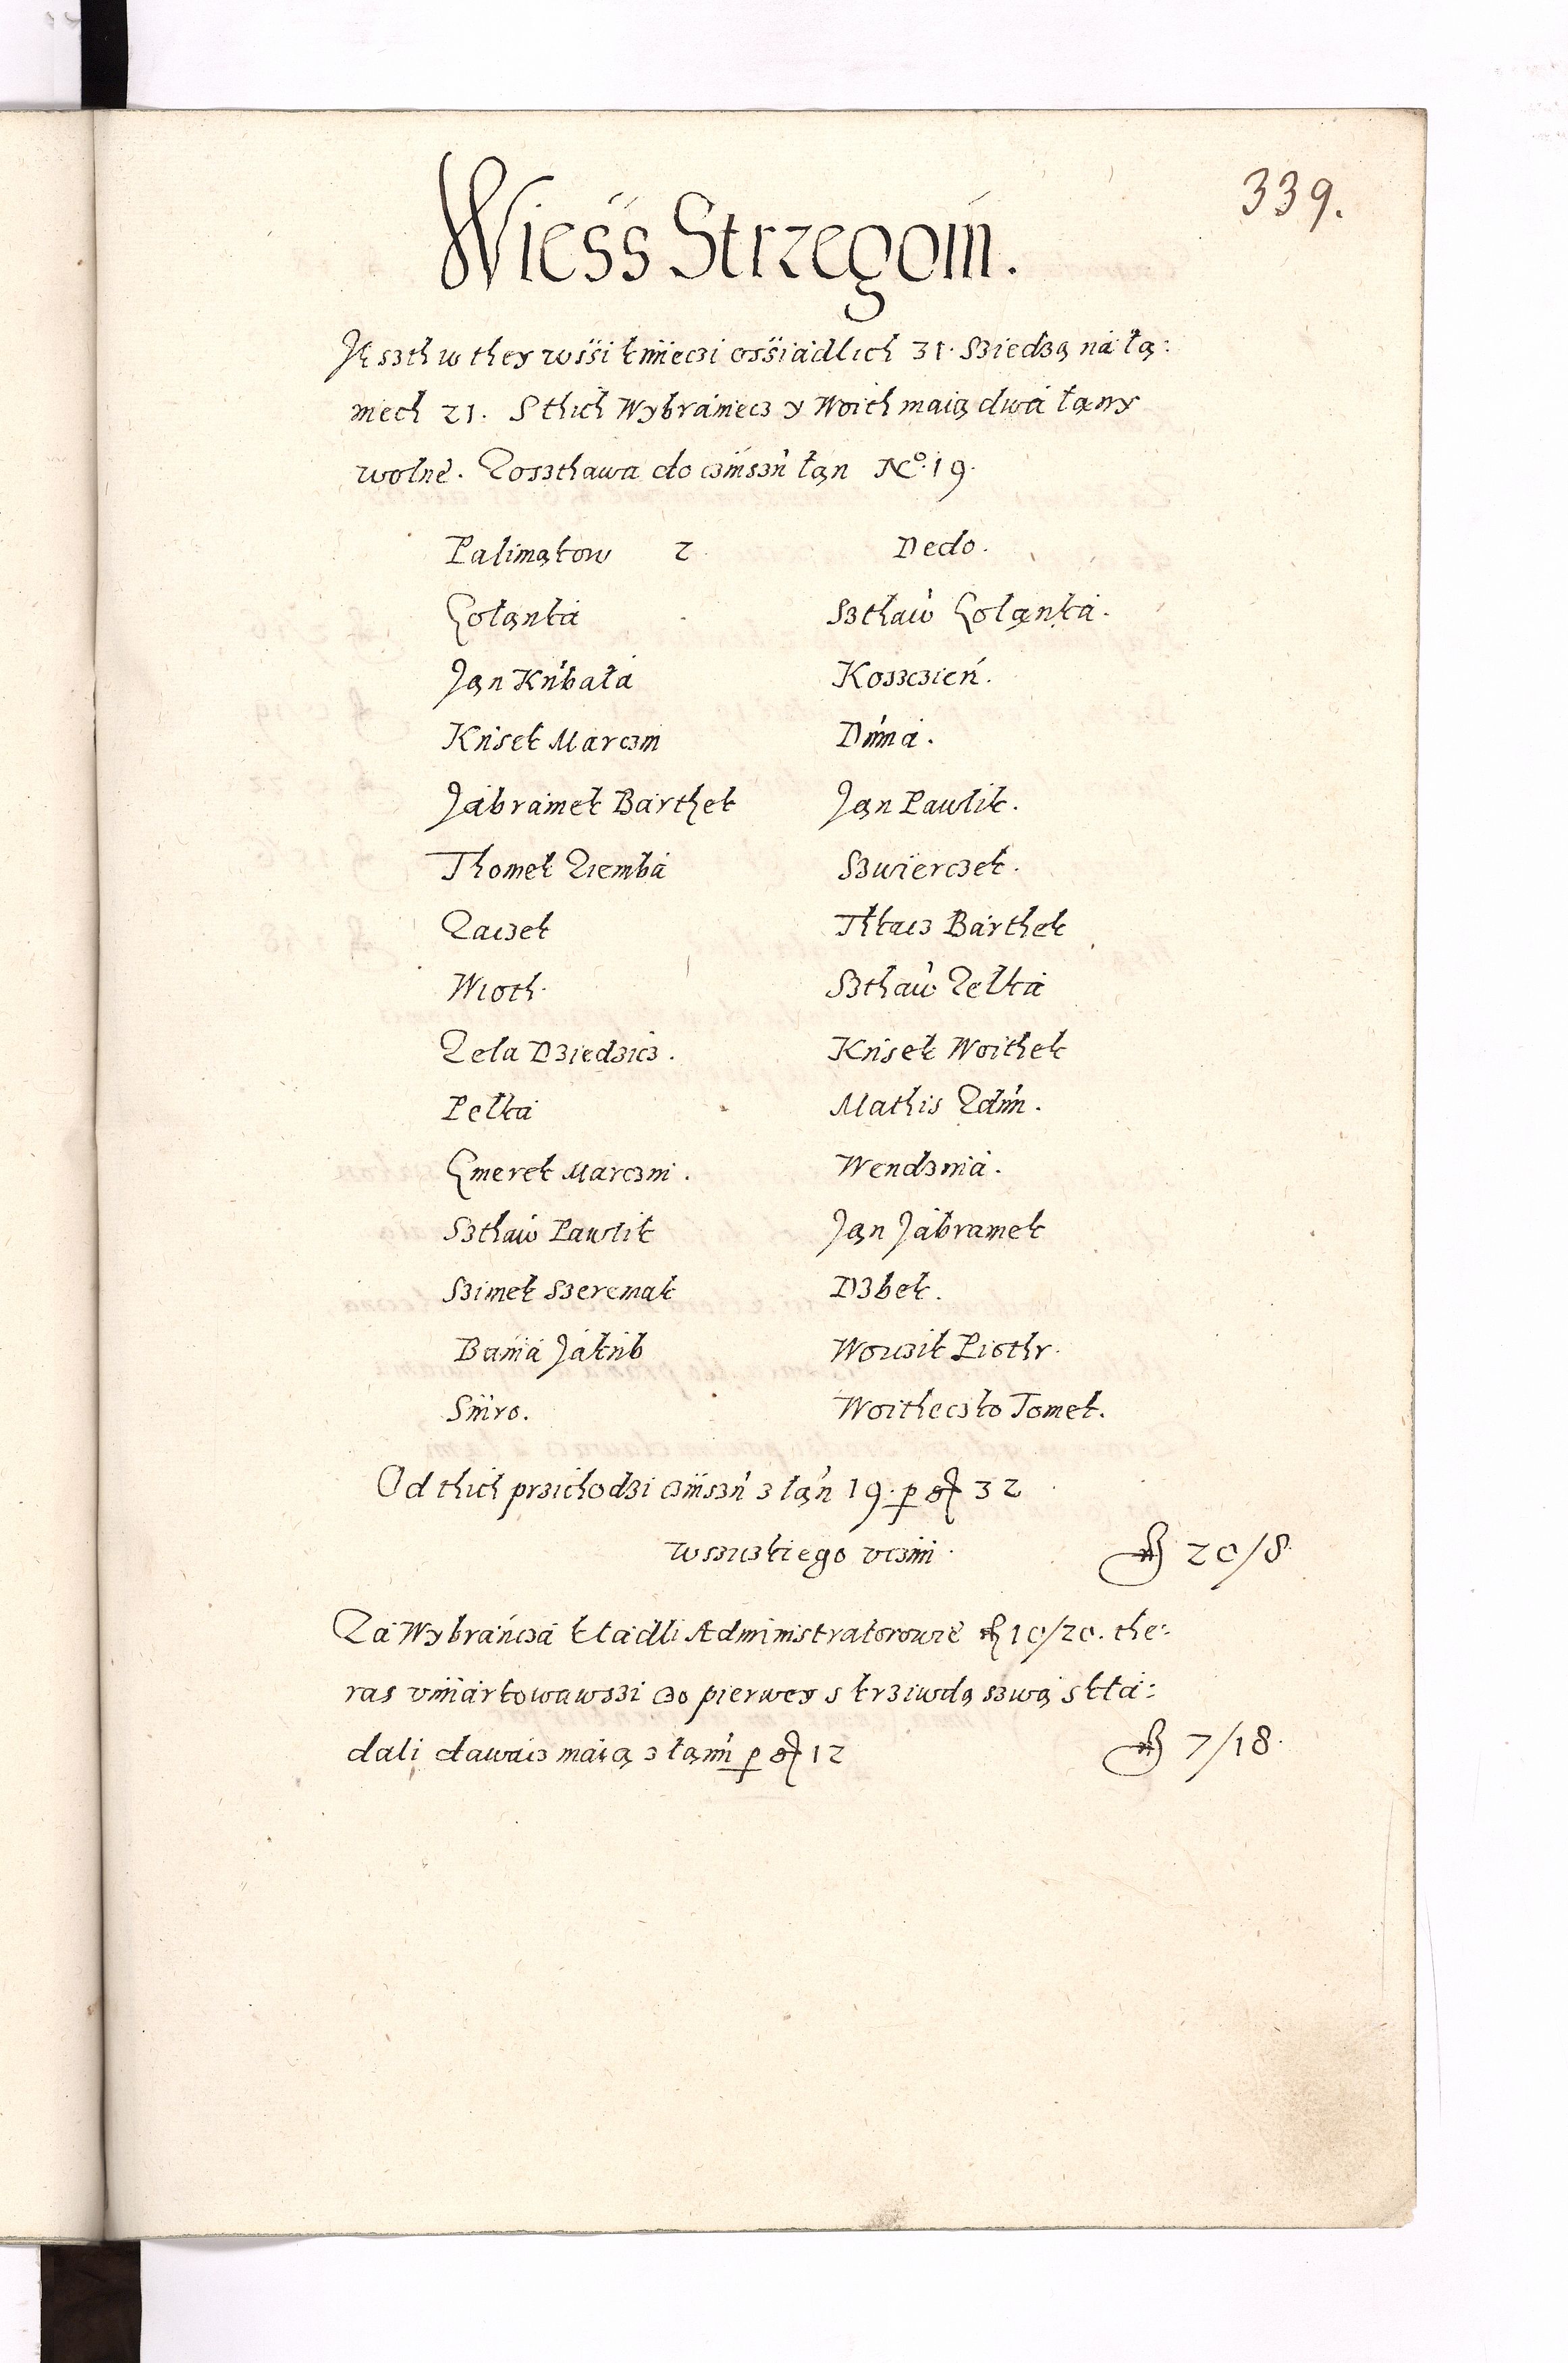 339.
Wiess Strzegom.
Jest w they wssi kmieczi ossiadlich 31. Siedzą na łą:
niech 21. Sthich Wybraniecz y Woith maią dwa łany
wolne. Zosthawa do czinszu łan No. 19.
Palimąkow 2. Dedo.
Gołąnka Szthaw Gołąnka.
Jan Kubała Koszczień.
Kusek Marczin Duma.
Jabramek Barthek Jan Pawlik.
Thomek Ziemba Szwierczek.
Zaczek Thkacz Barthek
Wioth. Szthaw Zelka
Zela Dziedzicz. Kusek Woithek
Pelka Mathis Zdun.
Gmerek Marczin. Wendznia.
Szthaw Pawlik Jan Jabramek
Szimek Szeremak Dzbek.
Bania Jakub Wowzik Piothr.
Smro. Woitheczko Tomek.
Od thich przichodzi czinszu z łanu 19. p 32
wszitkiego vczini. 20/8.
Za Wybrańcza kładli Administratorowie 10/20. the:
ras vmiarkowawszi czo pierwey s krziwdą szwą skła:
dali dawacz maią z łanu p 12 7/18.